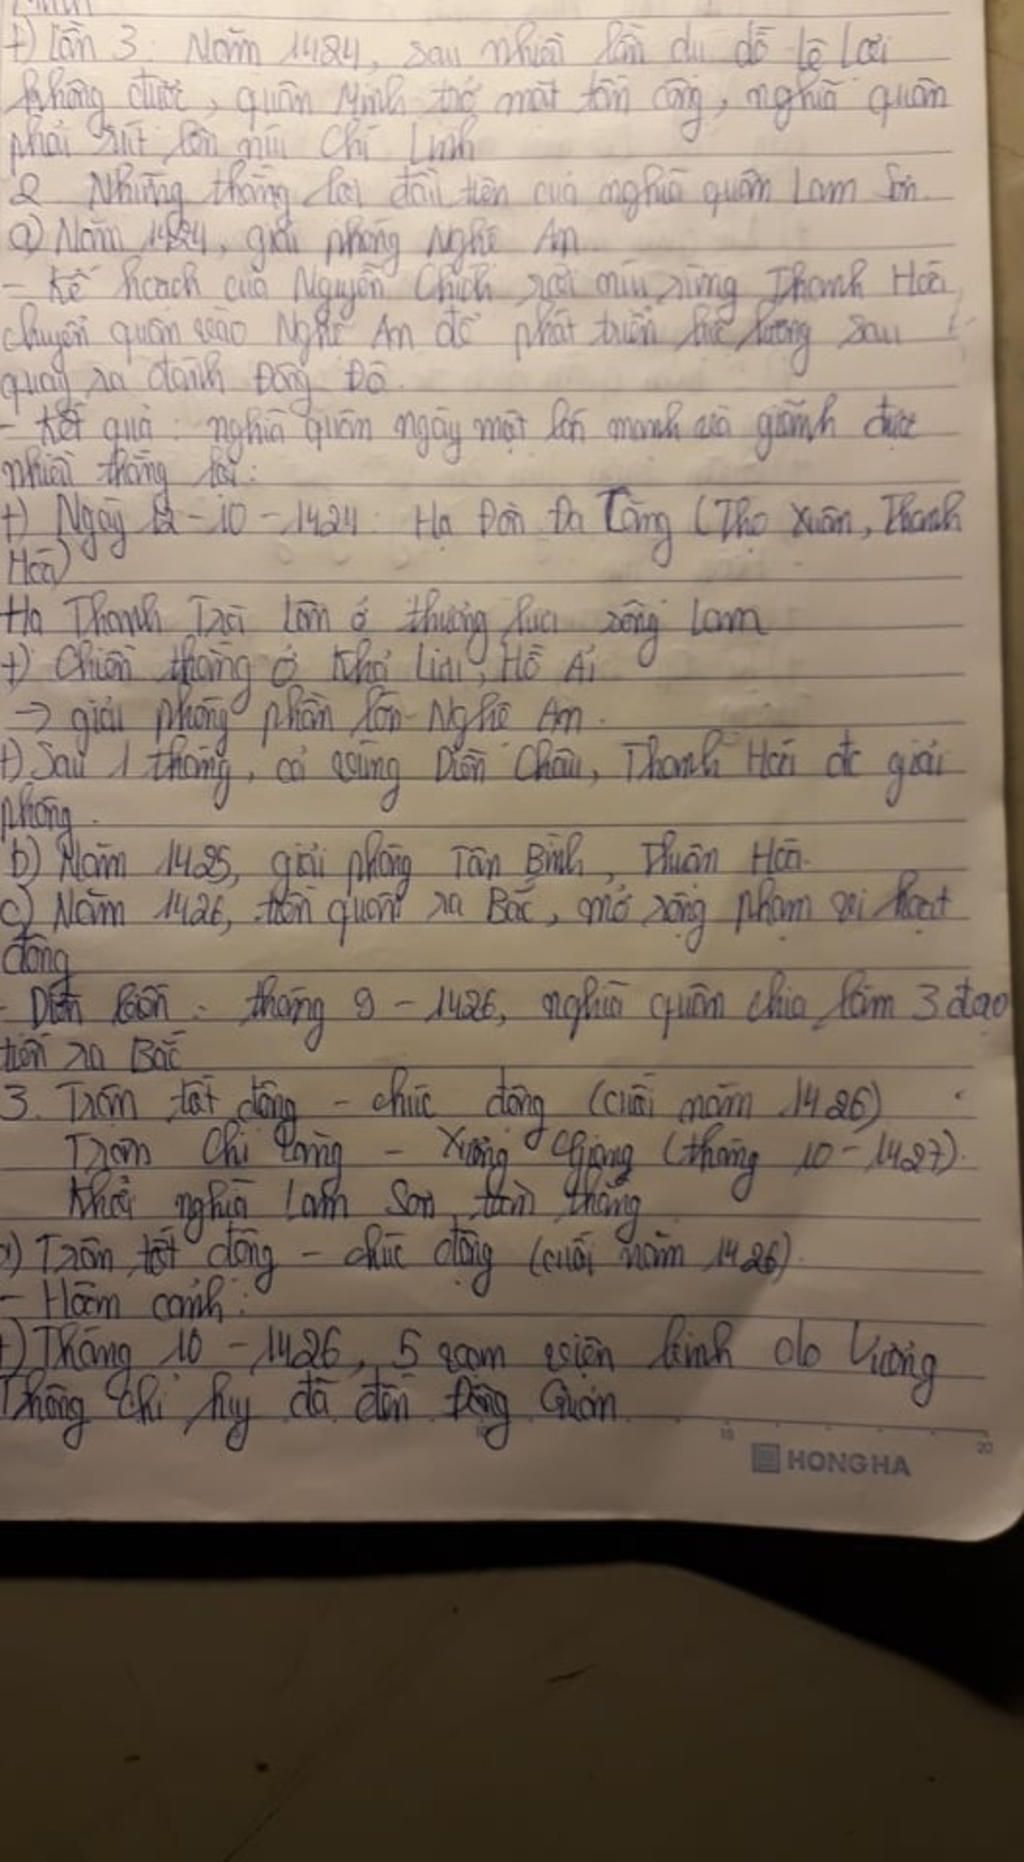 +) Lần 3: Năm 1424, sau nhiều lần dụ dỗ Lê Lợi
không được, quân Minh trở mặt tấn công, nghĩa quân
phải rút lên núi Chí Linh
2. Những thắng lợi đầu tiên của nghĩa quân Lam Sơn.
a) Năm 1424, giải phóng Nghệ An
- Kế hoạch của Nguyễn Chích rời núi rừng Thanh Hóa
chuyển quân vào Nghệ An để phát triển lực lượng sau
quay ra đánh Đông Đô.
- Kết quả: nghĩa quân ngày một lớn mạnh và giành được
nhiều thắng lợi:
+) Ngày 12-10-1424: Hạ Đồn Đa Căng (Thọ Xuân, Thanh
Hóa)
Hạ Thành Trà Lân ở thượng lưu sông Lam
+) Chiến thắng ở Khả Lưu, Bồ Ải
-> giải phóng phần lớn Nghệ An.
+) Sau 1 tháng, cả vùng Diễn Châu, Thanh Hóa đc giải
phóng.
b) Năm 1425, giải phóng Tân Bình, Thuận Hóa.
c) Năm 1426, tiến quân ra Bắc, mở rộng phạm vi hoạt
động
- Diễn biến: tháng 9-1426, nghĩa quân chia làm 3 đạo
tiến ra Bắc
3. Trận tốt động - chúc động (cuối năm 1426)
Trận Chi Lăng - Xương Giang (tháng 10-1427).
Khởi nghĩa Lam Sơn toàn thắng
a) Trận tốt động - chúc động (cuối năm 1426).
- Hoàn cảnh:
+) Tháng 10-1426, 5 vạn viện binh do Vương
Thông chỉ huy đã đến Đông Quan
15 20
HONG HA